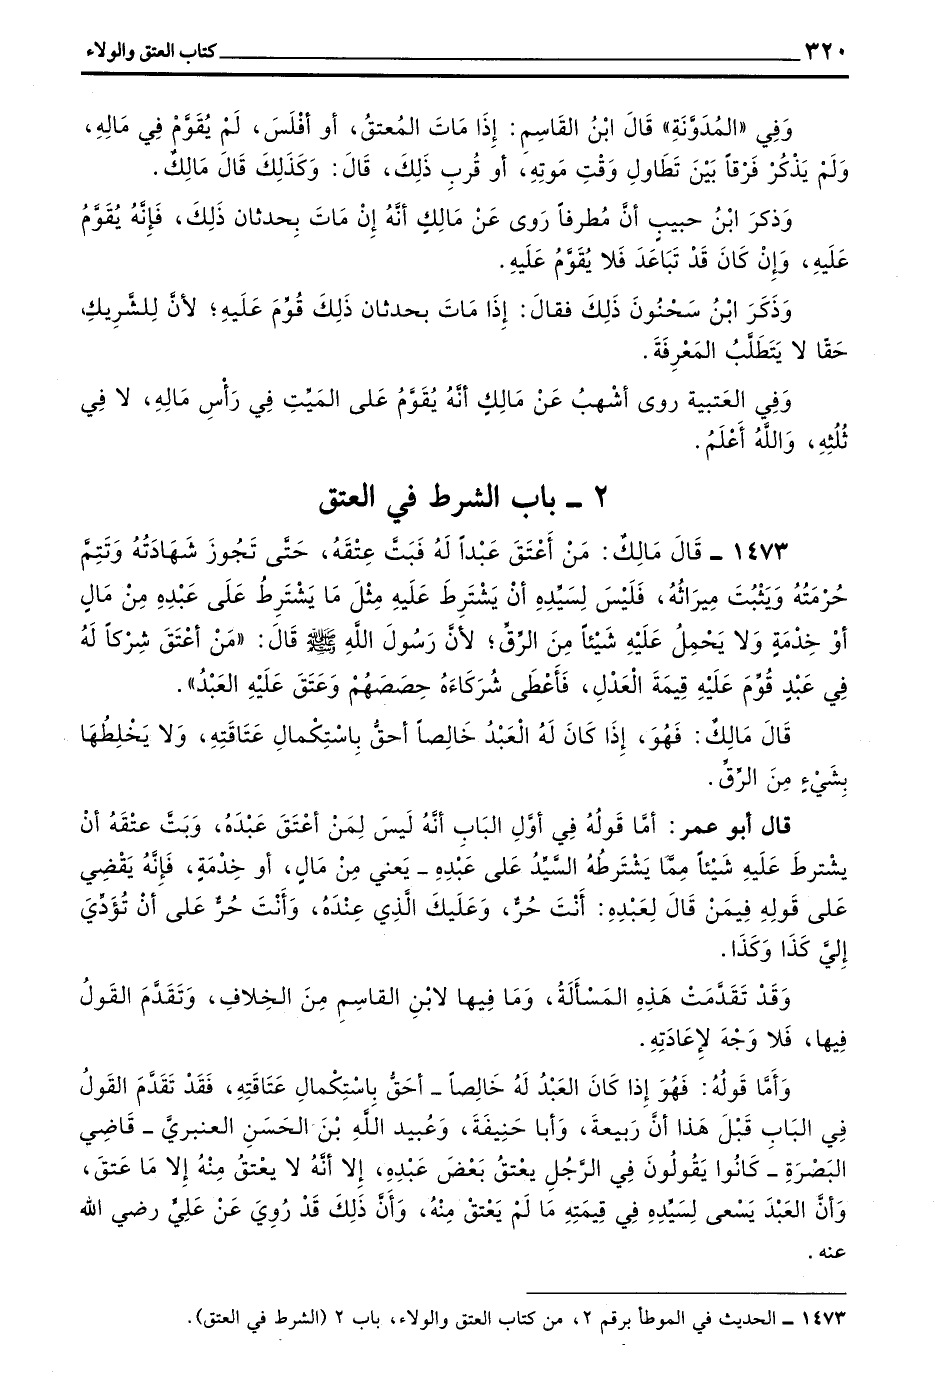 ٣٢٠ كتاب العتق والولاء
وَفِي «المُدَوَّنَةِ» قَالَ ابْنُ القَاسِمِ: إِذَا مَاتَ المُعتقُ، أو أفْلَسَ، لَمْ يُقَوَّمْ فِي مَالِهِ،
وَلَمْ يَذْكُرْ فَرْقاً بَيْنَ تَطَاولِ وَقْتِ مَوتِهِ، أو قُربِ ذَلِكَ، قَالَ: وَكَذَلِكَ قَالَ مَالِكٌ.
وَذكرَ ابْنُ حبيبٍ أنَّ مُطرفاً رَوى عَنْ مَالِكٍ أنَّهُ إنْ مَاتَ بِحدثان ذَلِكَ، فَإنَّهُ يُقَوَّمُ
عَلَيهِ، وَإنْ كَانَ قَدْ تَبَاعَدَ فَلا يُقَوَّمُ عَلَيهِ.
وَذَكَرَ ابْنُ سَحْنُونَ ذَلِكَ فقالَ: إِذَا مَاتَ بحدثان ذَلِكَ قُوِّمَ عَلَيهِ؛ لأنَّ لِلشَّرِيكِ
حَقّا لا يَتَطَلَّبُ المَعْرِفَةَ.
وَفِي العَتبية روى أشْهبُ عَنْ مَالِكٍ أنَّهُ يُقَوَّمُ عَلى المَيِّتِ فِي رَأْسِ مَالِهِ، لا فِي
ثُلُثِهِ، وَاللَّهُ أَعْلَمُ.
٢ ـ باب الشرط في العتق
١٤٧٣ ـ قَالَ مَالِكٌ: مَنْ أَعْتَقَ عَبْداً لَهُ فَبَتَّ عِتْقَهُ، حَتَّى تَجُوزَ شَهَادَتُهُ وَتَتِمَّ
حُرْمَتُهُ وَيَثْبُتَ مِيرَاثُهُ، فَلَيْسَ لِسَيِّدِهِ أنْ يَشْتَرِطَ عَلَيهِ مِثْلَ مَا يَشْتَرِطُ عَلَى عَبْدِهِ مِنْ مَالٍ
أوْ خِدْمَةٍ وَلا يَحْمِلُ عَلَيْهِ شَيْئاً مِنَ الرِّقِّ؛ لأنَّ رَسُولَ اللَّهِ ﷺ قَالَ: «مَنْ أعْتَقَ شِرْكاً لَهُ
فِي عَبْدٍ قُوِّمَ عَلَيْهِ قِيمَةَ الْعَدْلِ، فَأعْطَى شُرَكَاءَهُ حِصَصَهُمْ وَعَتَقَ عَلَيْهِ العَبْدُ».
قَالَ مَالِكٌ: فَهُوَ، إِذَا كَانَ لَهُ الْعَبْدُ خَالِصاً أحقُّ بِاسْتِكْمالِ عَتَاقَتِهِ، وَلا يَخْلِطُهَا
بِشَيْءٍ مِنَ الرِّقِّ.
قال أبو عمر: أمَّا قَولُهُ فِي أوَّلِ البَابِ أنَّهُ لَيسَ لِمَنْ أعْتَقَ عَبْدَهُ، وَبَتَّ عتْقَهُ أنْ
يشْترطَ عَلَيهِ شَيْئاً مِمَّا يَشْتَرطُهُ السَّيِّدُ عَلى عَبْدِهِ ـ يَعني مِنْ مَالٍ، أو خِدْمَةٍ، فَإنَّهُ يَقْضِي
عَلى قَولِهِ فِيمَنْ قَالَ لِعَبْدِهِ: أنْتَ حُرٌّ، وَعَلَيكَ الَّذِي عِنْدَهُ، وَأنْتَ حُرٌّ عَلى أنْ تُؤَدِّيَ
إليَّ كَذَا وَكَذَا.
وَقَدْ تَقَدَّمَتْ هَذِهِ المَسْأَلَةُ، وَمَا فِيها لابْنِ القاسِمِ مِنَ الخِلافِ، وَتَقَدَّمَ القَولُ
فِيها، فَلا وَجْهَ لإعَادَتِهِ.
وَأمَّا قَولُهُ: فَهُوَ إذا كَانَ العَبْدُ لَهُ خَالِصاً ـ أحَقُّ بِاسْتِكْمالِ عَتَاقَتِهِ، فَقَدْ تَقَدَّمَ القَولُ
فِي البَابِ قَبْلَ هَذا أنَّ رَبيعةَ، وَأبا حَنِيفَةَ، وَعُبيد اللَّهِ بْنَ الحَسَنِ العنبريَّ ـ قَاضِي
البَصْرَةِ ـ كَانُوا يَقُولُونَ فِي الرَّجُلِ يعْتقُ بَعْضَ عَبْدِهِ، إلا أنَّهُ لا يعْتقُ مِنْهُ إلا مَا عَتقَ،
وَأنَّ العَبْدَ يَسْعى لِسَيِّدِهِ فِي قِيمَتِهِ مَا لَمْ يَعْتقْ مِنْهُ، وَأنَّ ذَلِكَ قَدْ رُوِيَ عَنْ عَلِيٍّ رضي الله
عنه.
١٤٧٣ ـ الحديث في الموطأ برقم ٢، من كتاب العتق والولاء، باب ٢ (الشرط في العتق).